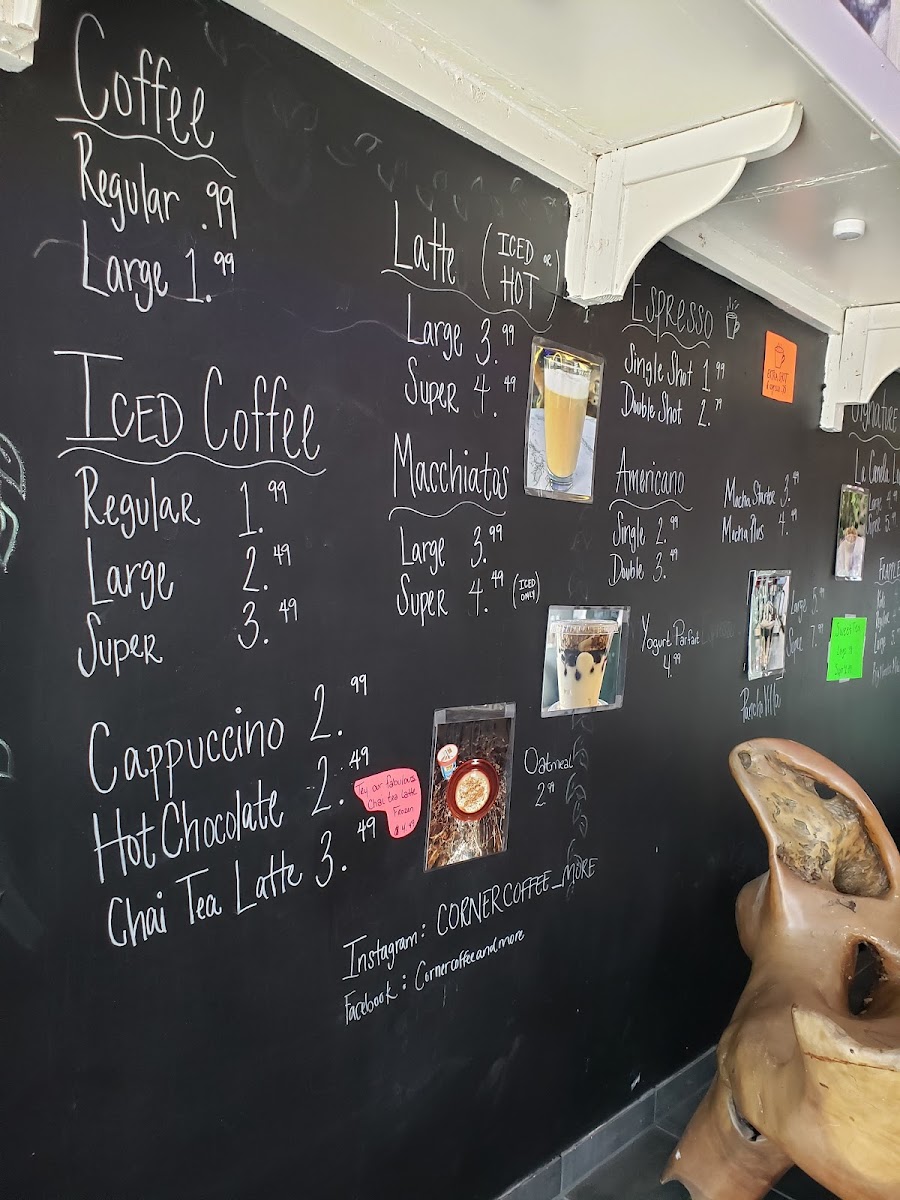 Coffee
Regular .99
Large 1.99
ICED Coffee
Regular 1.99
Large 2.49
Super 3.49
Cappuccino 2.99
Hot Chocolate 2.49
Chai Tea Latte 3.49
Try our fabulous
Chai tea latte
Frozen
Latte (ICED or HOT)
Large 3.99
Super 4.49
Macchiatos
Large 3.99
Super 4.49 (ICED ONLY)
Oatmeal
2.99
Instagram: CORNERCOFFEE_MORE
Facebook: Cornercoffeeandmore
Espresso
Single Shot 1.99
Double Shot 2.79
Americano
Single 2.99
Double 3.49
Yogurt Parfait
4.99
Mocha Starter 3.49
Mocha Plus 4.49
Large
Pancho Villa
Signature
Large